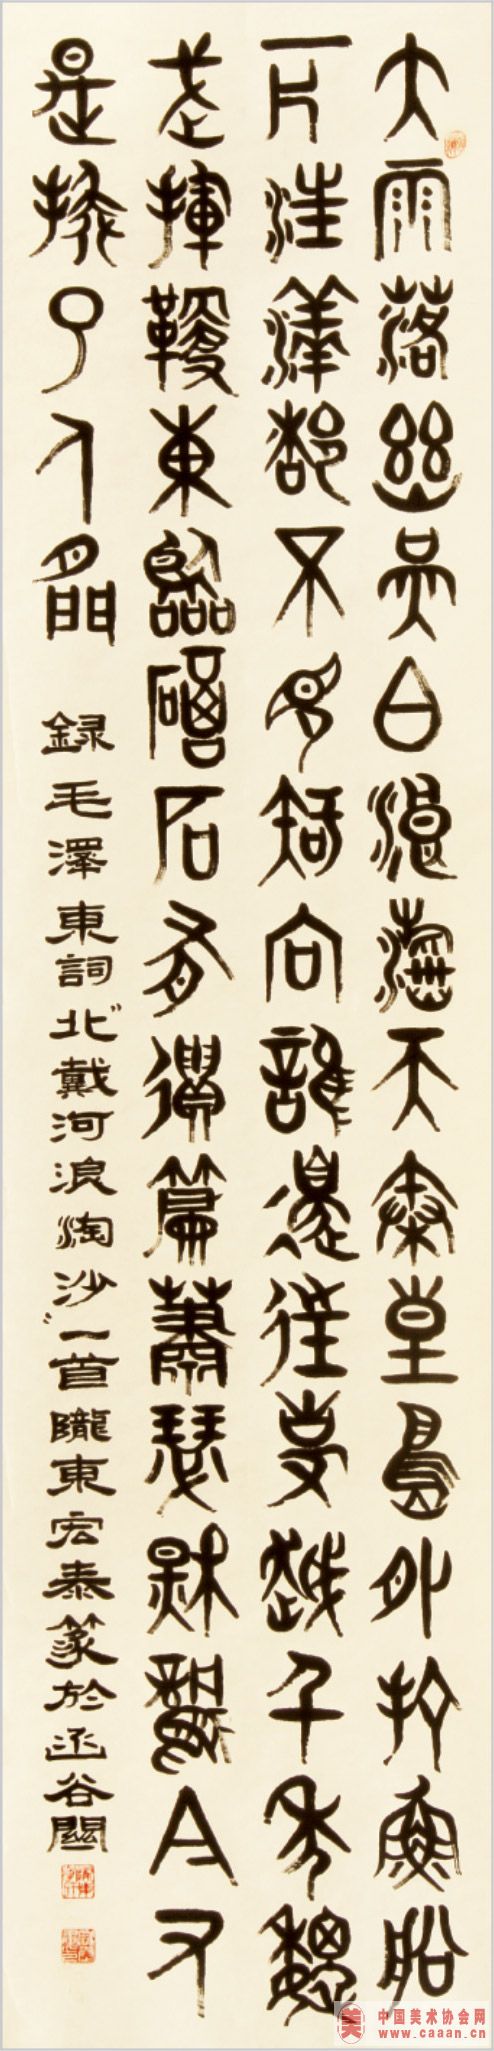 大雨落幽燕白浪滔天秦皇島外打魚船
一片汪洋都不見知向誰邊往事越千年魏
武揮鞭東臨碣石有遺篇蕭瑟秋風今又
是換了人間
錄毛澤東詞北戴河浪淘沙一首隴東宏泰篆於函谷關
美 中国美术协会网
www.caaan.cn